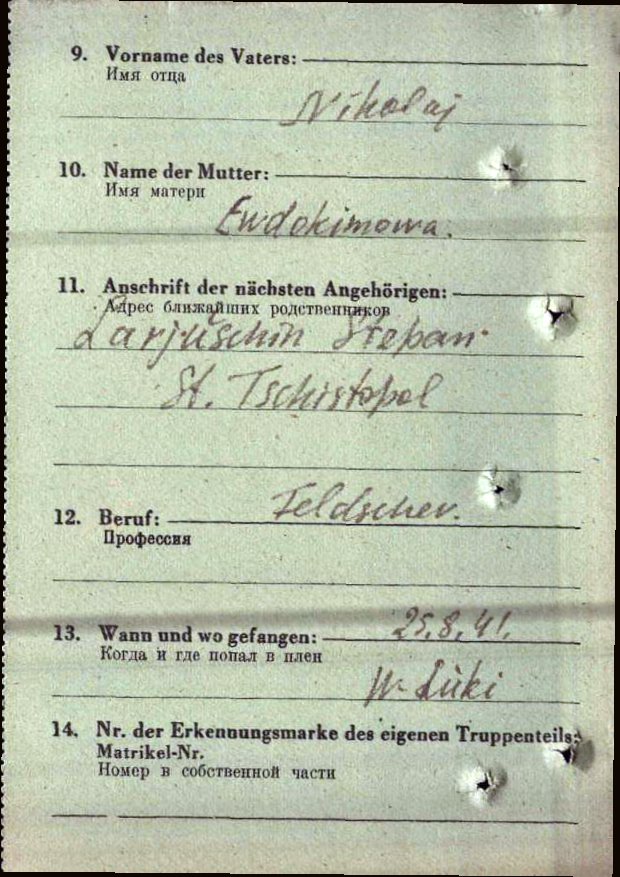 9. Vorname des Vaters:
Имя отца
Nikolaj
10. Name der Mutter:
Имя матери
Ewdokimowa.
11. Anschrift der nächsten Angehörigen:
Адрес ближайших родственников
Larjuschin Stepan
St. Tschistopol
12. Beruf: Feldscher.
Профессия
13. Wann und wo gefangen: 25.8.41.
Когда и где попал в плен
W. Luki
14. Nr. der Erkennungsmarke des eigenen Truppenteils:
Matrikel-Nr.
Номер в собственной части